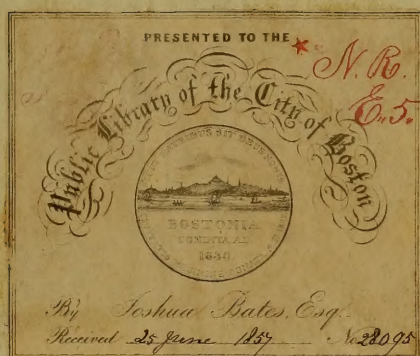 PRESENTED TO THE
* N. R.
E. 5.
Public Library of the City of Boston
SICUT PATRIBUS SIT DEUS NOBIS
BOSTONIA
CONDITA AD.
1630.
By Joshua Bates, Esq.
Received 25 June 1857 No 28095